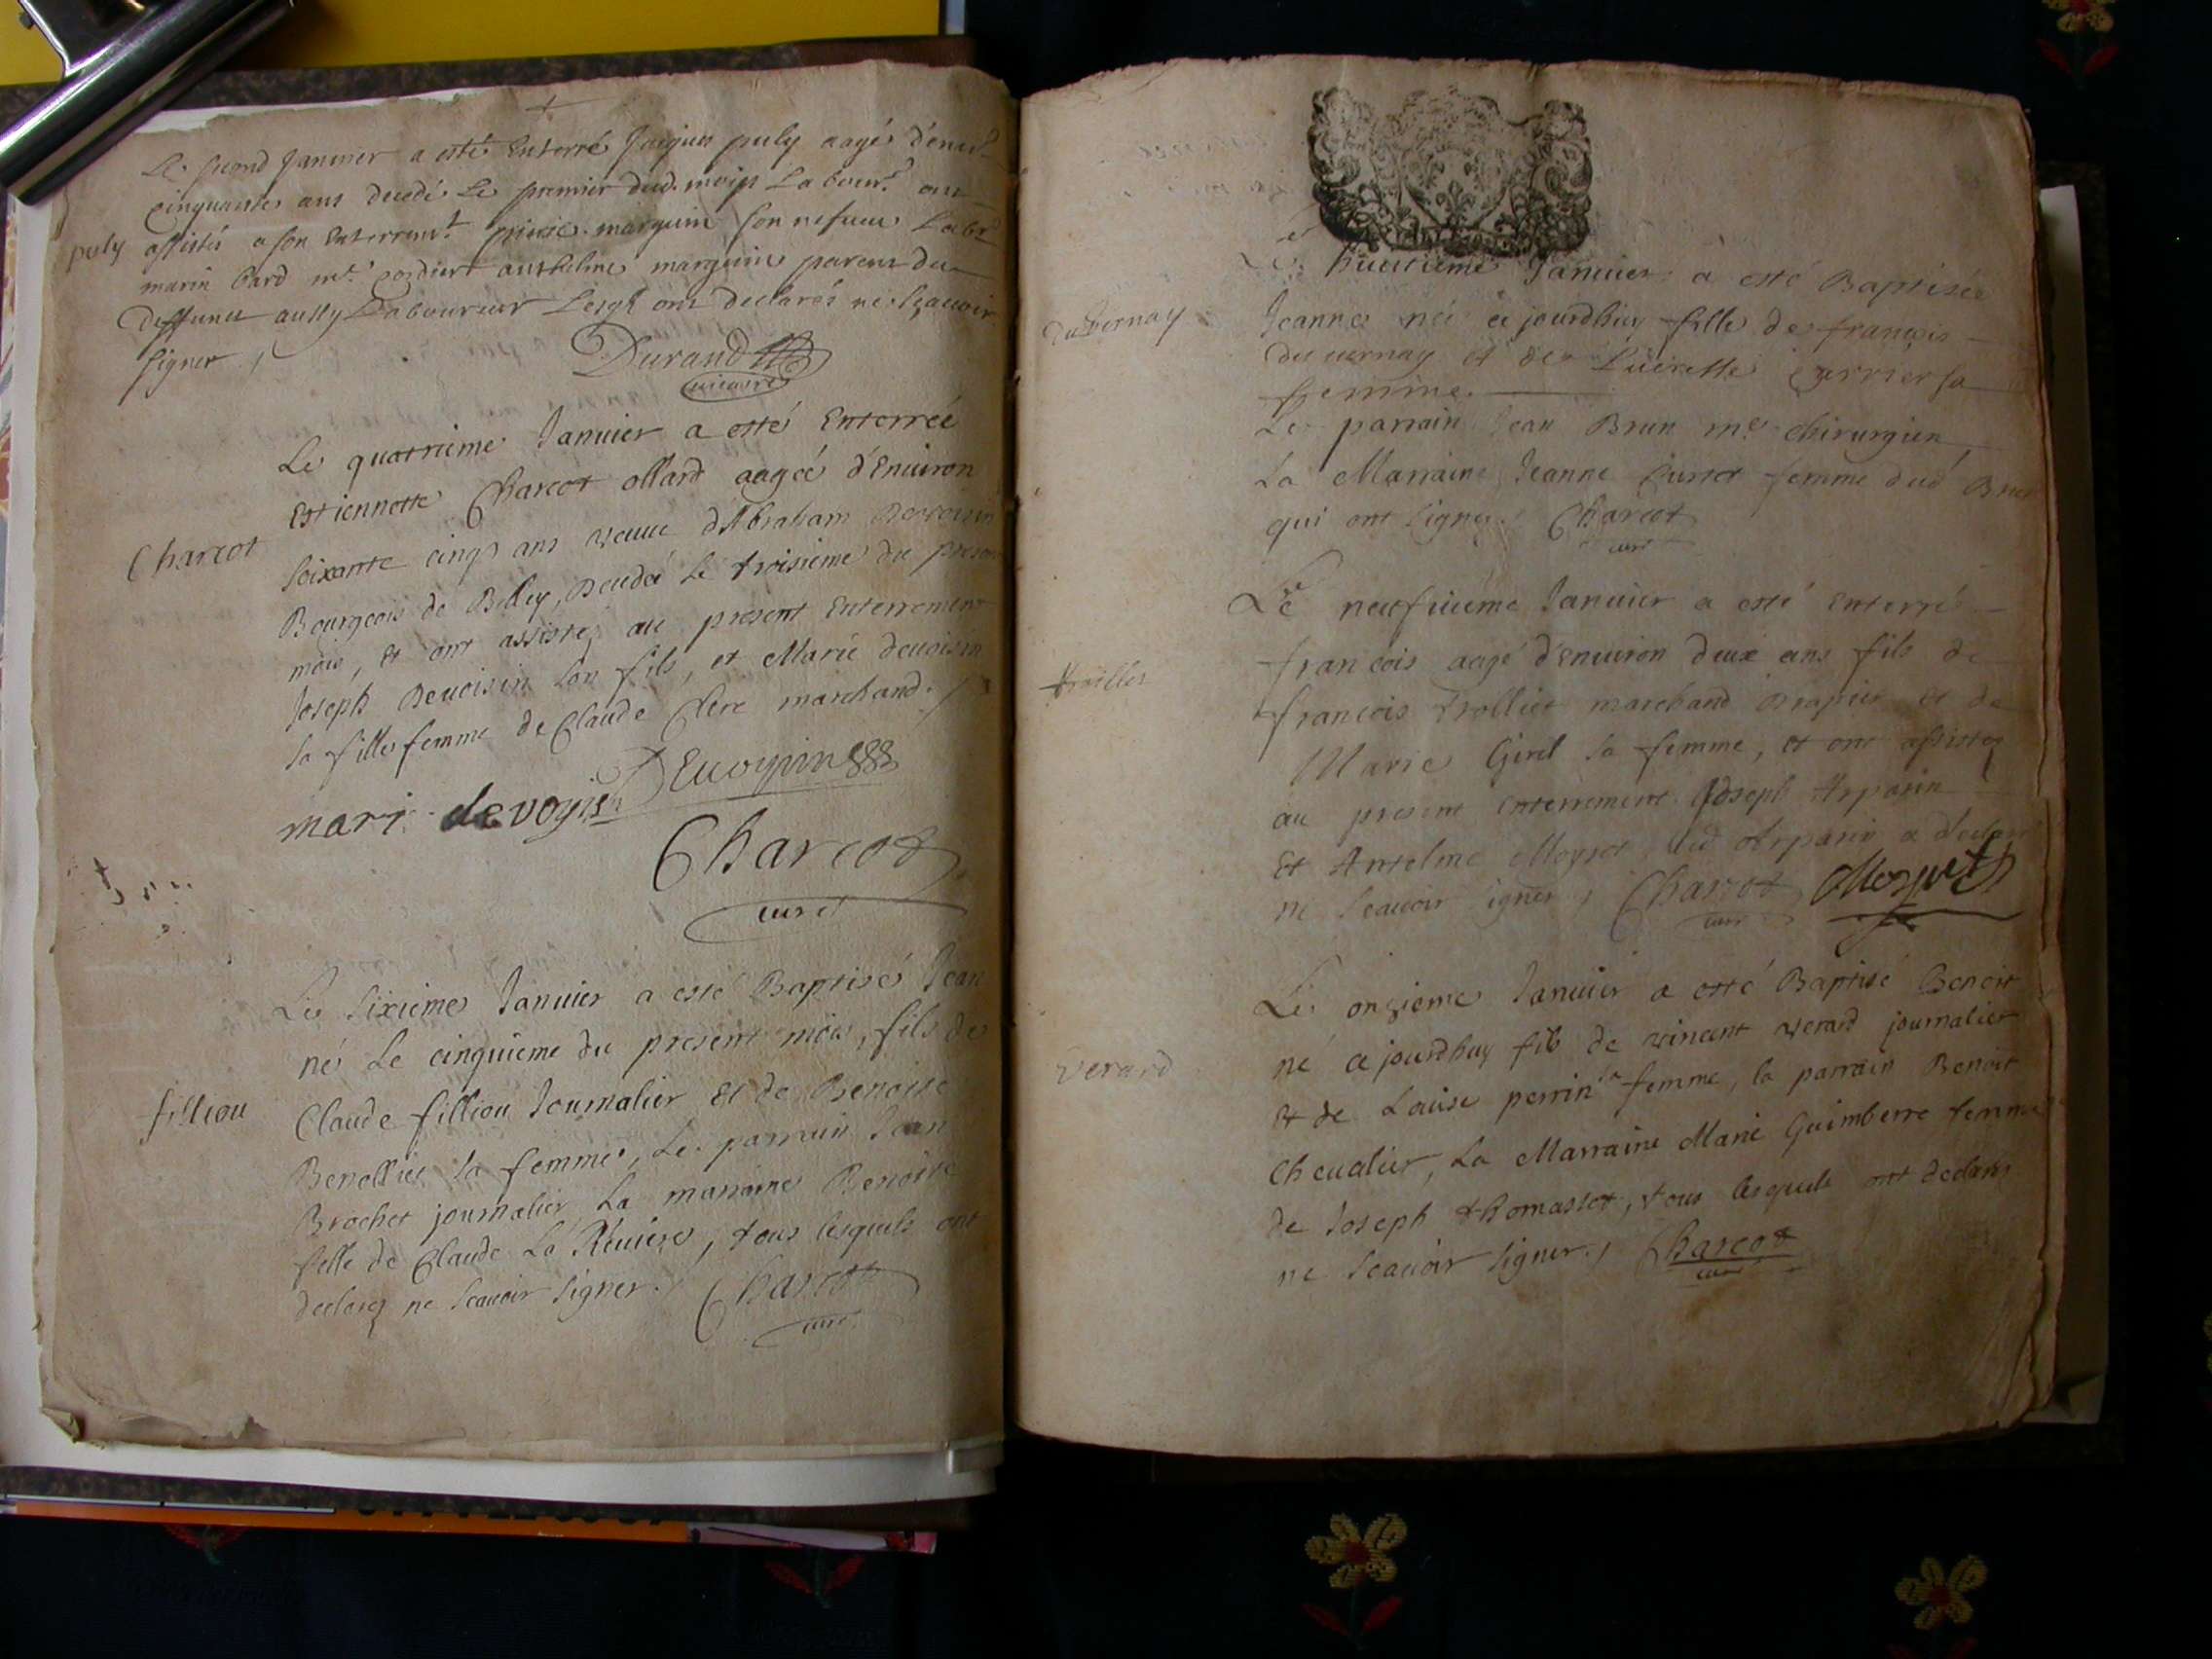 Le second Janvier a esté Enterré Jacques puly aagé d'envir.
cinquante ans decedé Le premier dud. mois Labour.r ont
puly
assistés a son Enterrem.t marguin son nefueu Lab.r
marin bard m.e cordier anthelme marguin parens du
deffunct aussy Laboureur Lesq.ls ont declarés ne sçauoir
signer
Durand
vicaire
Le quatrieme Januier a esté Enterrée
Estiennette Charcot ollard aagée d'Enuiron
Charcot
soixante cinq ans veuue d'Abraham Deuoisin
Bourgeois de Belley, Decedée Le troisieme du present
mois, et ont assistez au present Enterrement
Joseph Deuoisin son fils, et Marie deuoisin
sa fille femme de Claude Clerc marchand.
DEuoysin
mari devoysin
Charcot
curé
Le Sixieme Januier a esté Baptisé Jean
né Le cinquieme du present mois, fils de
filliou
Claude filliou Journalier Et de Benoite
sa femme, Le parrain Jean
Brochet journalier La marraine Benoite
fille de Claude La Riuiere, tous lesquels ont
declarez ne scauoir signer. Charcot
curé
Le huitieme Januier a esté Baptisée
duvernay
Jeanne née ce jourdhuy fille de francois
duuernay et de sa
femme.
Le parrain Jean Brun m.e chirurgien
La Marraine Jeanne femme dud Brun
qui ont signez Charcot
curé
Le neufuieme Januier a esté Enterré
francois aagé d'Enuiron deux ans fils de
trollier
francois trollier marchand drapier et de
Marie Girel sa femme, et ont assistez
au present enterrement Joseph Arparin
Et Antelme Moyret, led Arparin a declaré
ne scauoir signer, Charcot
curé
Le onzieme Januier a esté Baptisé Benoit
né ce jourdhuy fils de vincent verard journalier
verard
et de Louise perrin sa femme, le parrain Benoit
Cheualier, La Marraine Marie Guimberre femme
de Joseph thomasset, tous lesquels ont declarés
ne scauoir signer, Charcot
curé